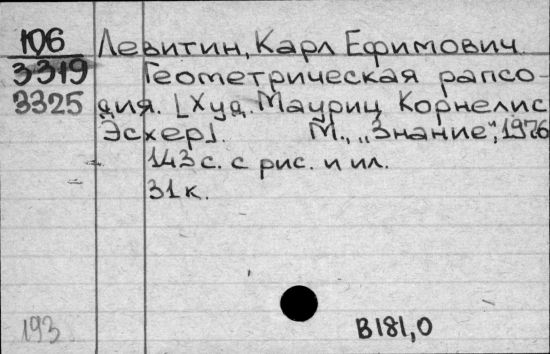 106 Левитин, Карл Ефимович.
3319 Геометрическая рапсо-
3325 дия. [Худ. Мауриц Корнелис
Эсхер]. М., „Знание", 1976
143 с. с рис. и ил.
31 к.
193 В181,0